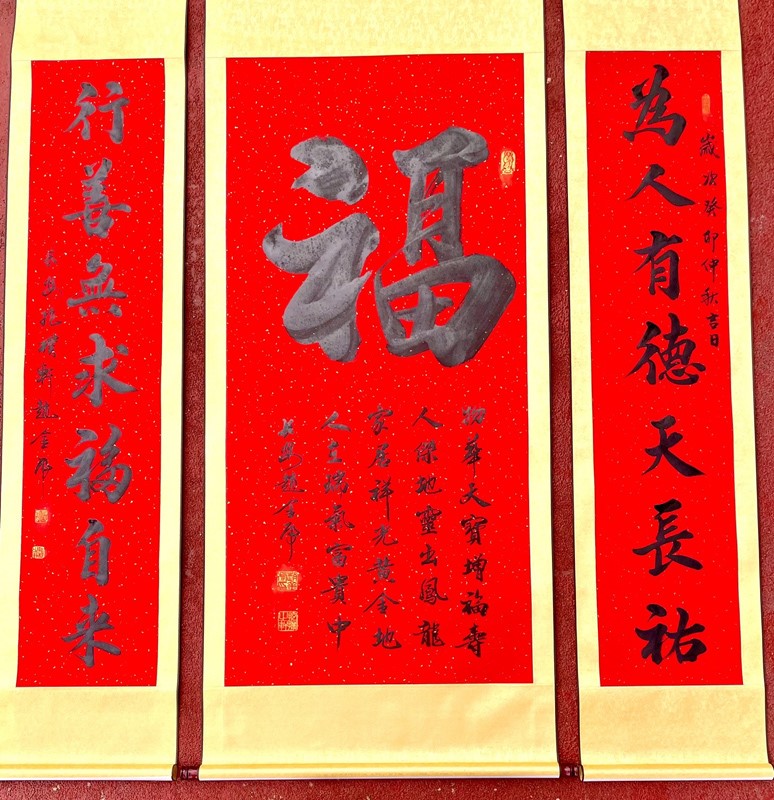 歲次癸卯仲秋吉日
為人有德天長祐
福
物華天寶增福壽
人傑地靈出鳳龍
家居祥光黃金地
人主瑞氣富貴中
長安趙金
行善無求福自来
長安